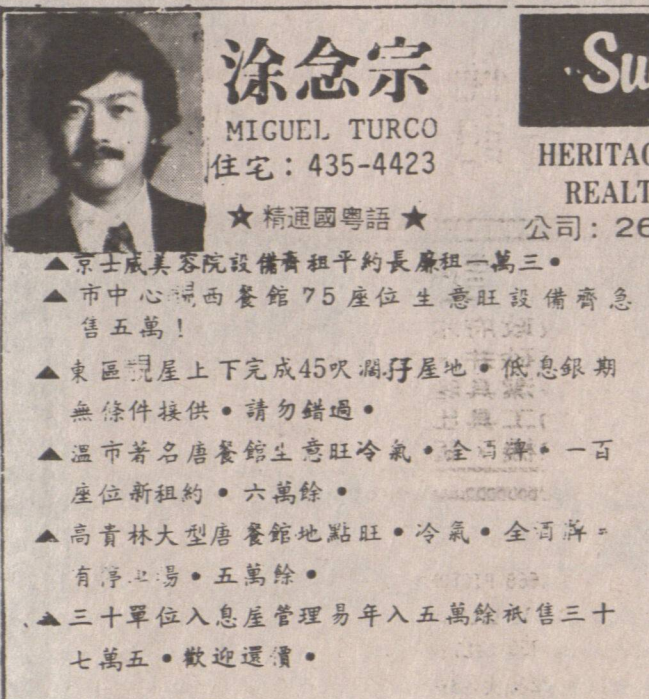 涂念宗
MIGUEL TURCO
住宅：435-4423
☆ 精通國粵語 ★
Su
HERITAG
REALT
公司：26
▲京士威美容院設備齊租平約長廉租一萬三•
▲市中心靚西餐館75座位生意旺設備齊急
售五萬！
▲東區靚屋上下完成45呎濶孖屋地•低息銀期
無條件接供•請勿錯過•
▲溫市著名唐餐館生意旺冷氣•全酒牌•一百
座位新租約•六萬餘•
▲高貴林大型唐餐館地點旺•冷氣•全酒牌•
有停車場•五萬餘•
▲三十單位入息屋管理易年入五萬餘祇售三十
七萬五•歡迎還價•